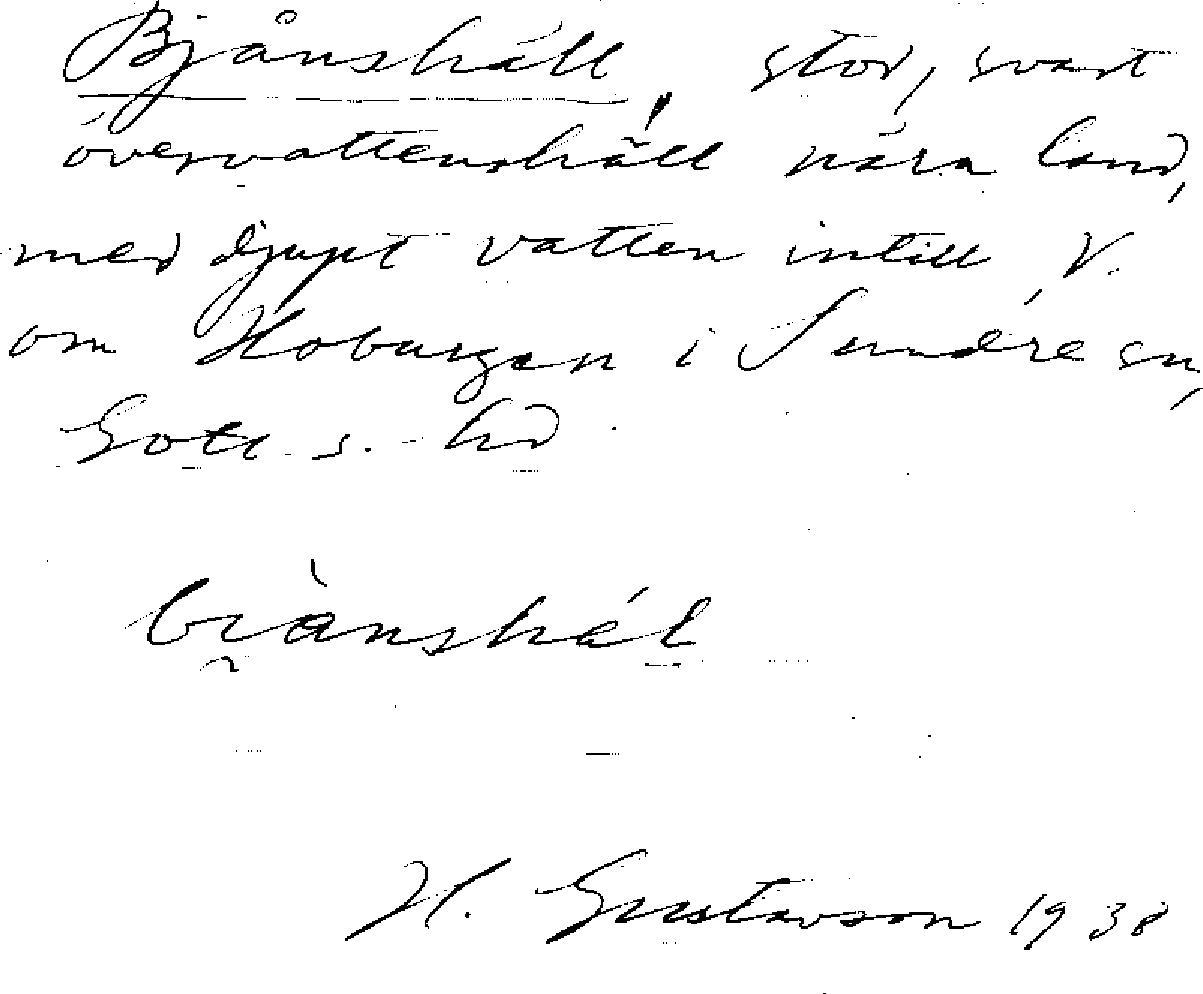 Bjånshäll, stor, svart
övervattenshäll nära land,
med djupt vatten intill V.
om Hoburgen i Sundre sn,
Gotl. s. hd
biànshál
H. Gustavson 1938